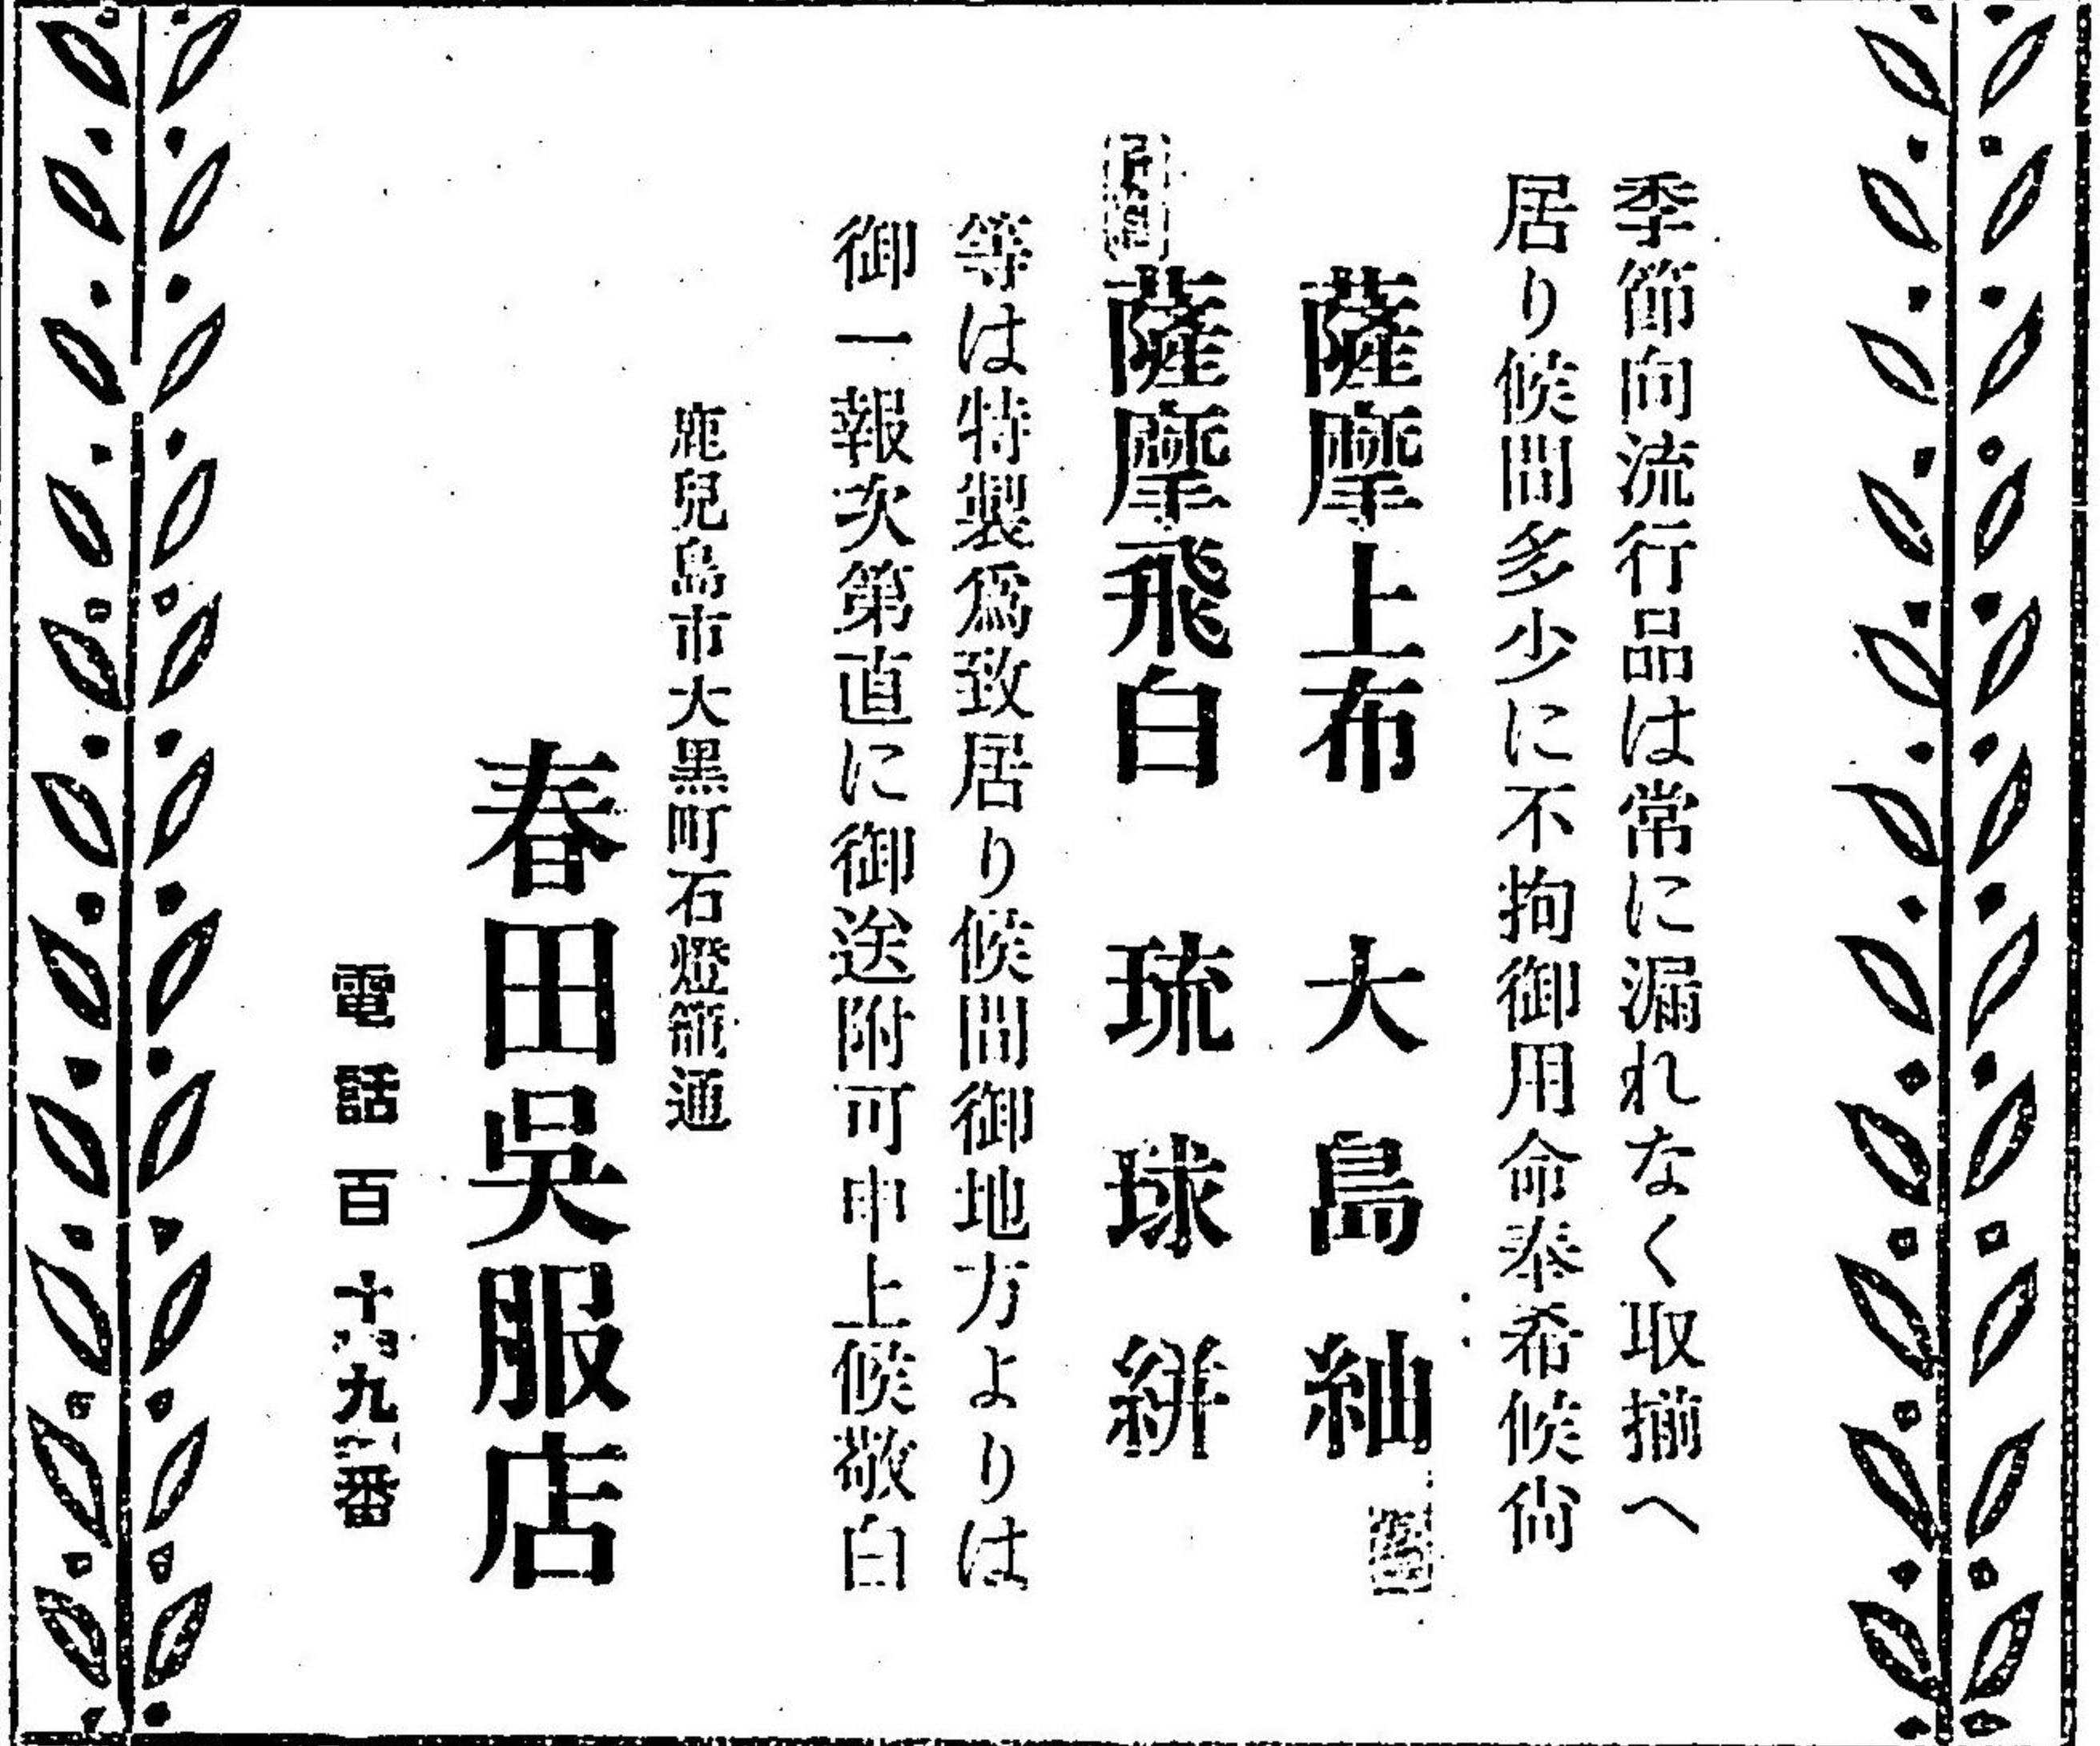 季節向流行品は常に漏れなく取揃へ
居り候間多少に不拘御用命奉希候尙
薩摩上布 大島紬
薩摩飛白 琉球絣
等は特製爲致居り候間御地方よりは
御一報次第直に御送附可申上候敬白
鹿兒島市大黑町石燈籠通
春田吳服店
電話百十九番